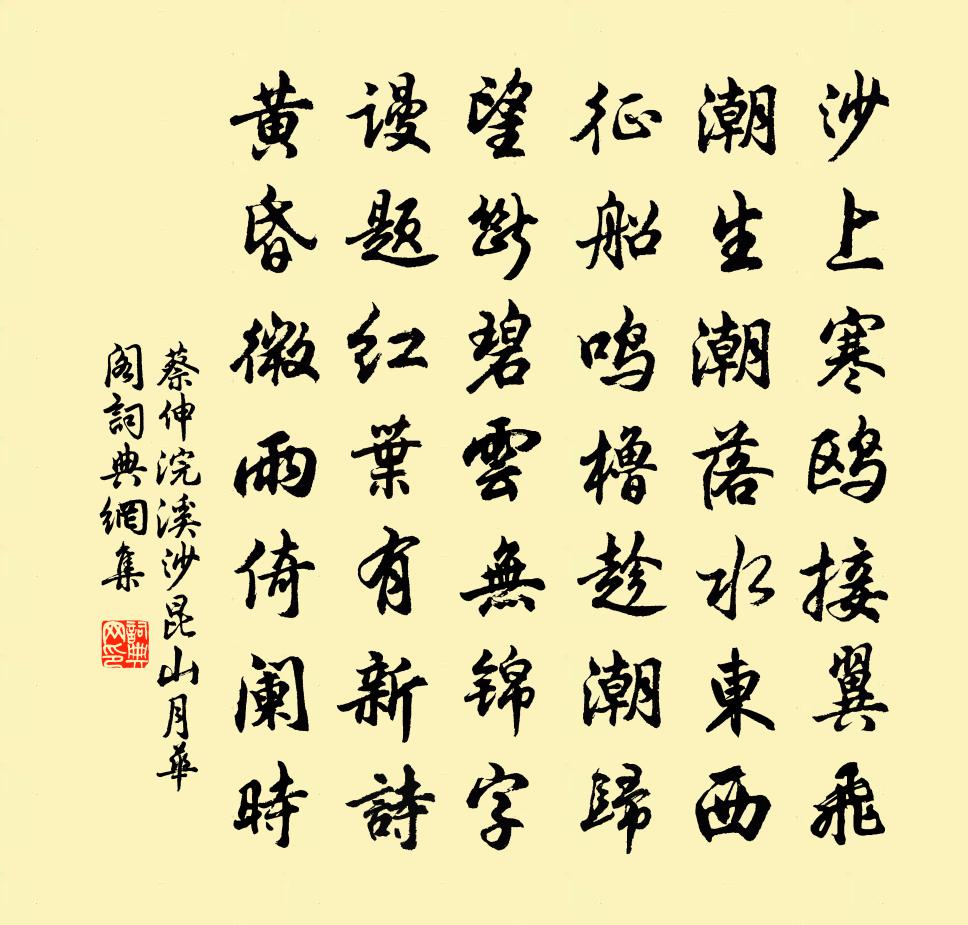 沙上寒鸥接翼飛
潮生潮落水東西
征船鸣橹趁潮歸
望斷碧雲無锦字
谩題红葉有新詩
黄昏微雨倚阑時
蔡伸浣溪沙昆山月華
阁詞典網集
詞典網印